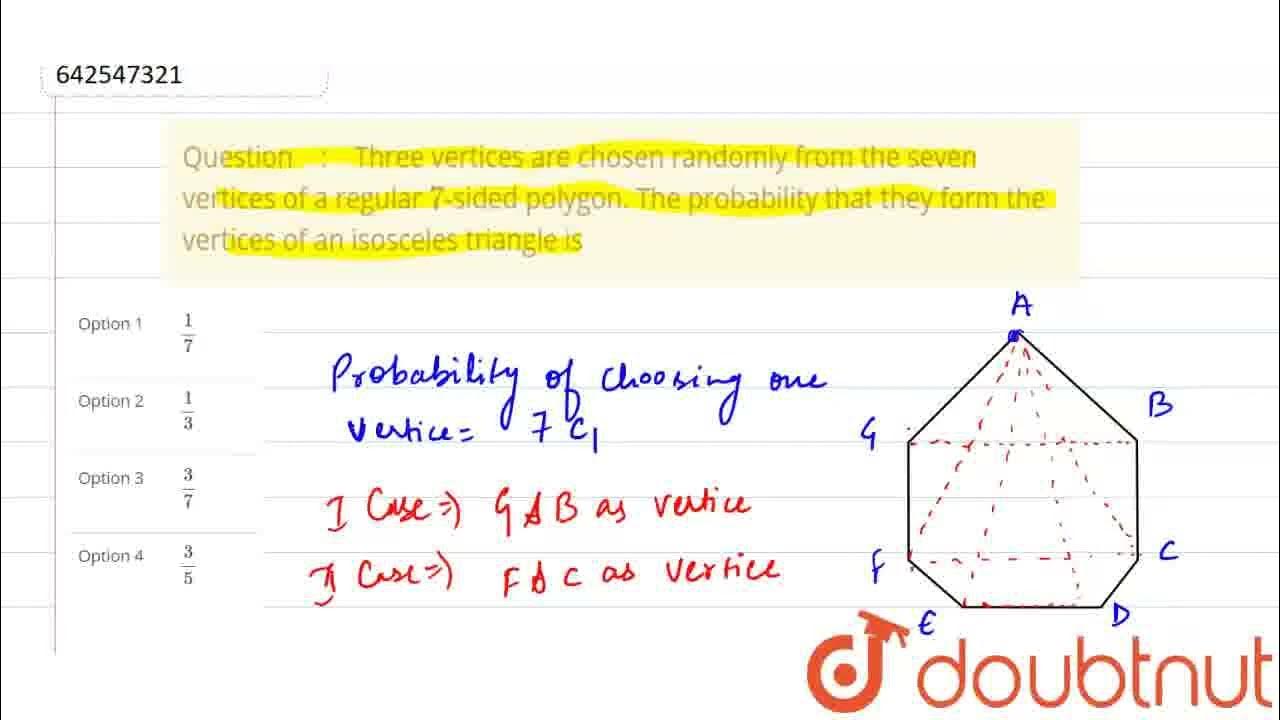 642547321
Question : Three vertices are chosen randomly from the seven
vertices of a regular 7-sided polygon. The probability that they form the
vertices of an isosceles triangle is
Option 1 1/7
Option 2 1/3
Option 3 3/7
Option 4 3/5
Probability of choosing one
vertice = 7 C₁
I Case ⇒) G A B as vertice
II Case ⇒) F A C as vertice
A
B
G
C
F
E
D
doubtnut